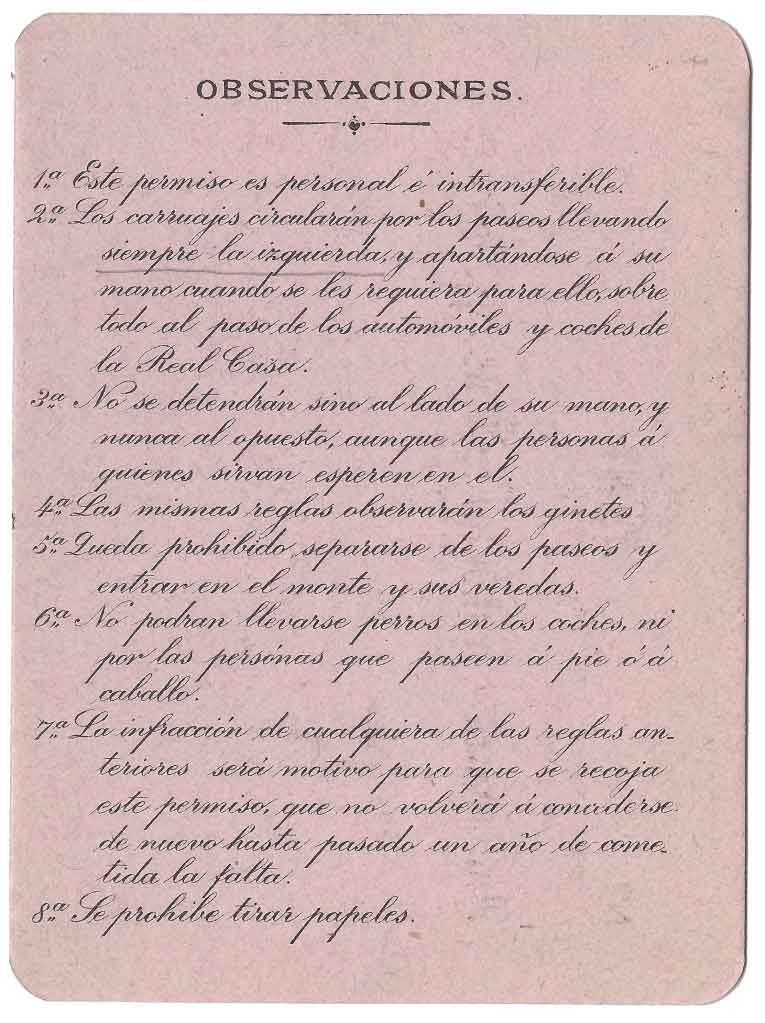 OBSERVACIONES.
1.ª Este permiso es personal é intransferible.
2.ª Los carruajes circularán por los paseos llevando
siempre la izquierda, y apartándose á su
mano cuando se les requiera para ello, sobre
todo al paso de los automóviles y coches de
la Real Casa.
3.ª No se detendrán sino al lado de su mano, y
nunca al opuesto, aunque las personas á
quienes sirvan esperen en el.
4.ª Las mismas reglas observarán los ginetes
5.ª Queda prohibido separarse de los paseos y
entrar en el monte y sus veredas.
6.ª No podran llevarse perros en los coches, ni
por las persónas que paseen á pie ó á
caballo.
7.ª La infracción de cualquiera de las reglas an-
teriores será motivo para que se recoja
este permiso, que no volverá á concederse
de nuevo hasta pasado un año de come-
tida la falta.
8.ª Se prohibe tirar papeles.